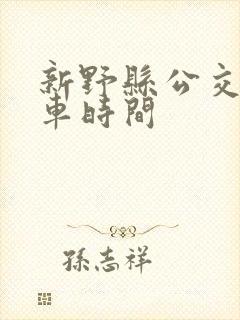 新野縣公交
車時間
孫志祥